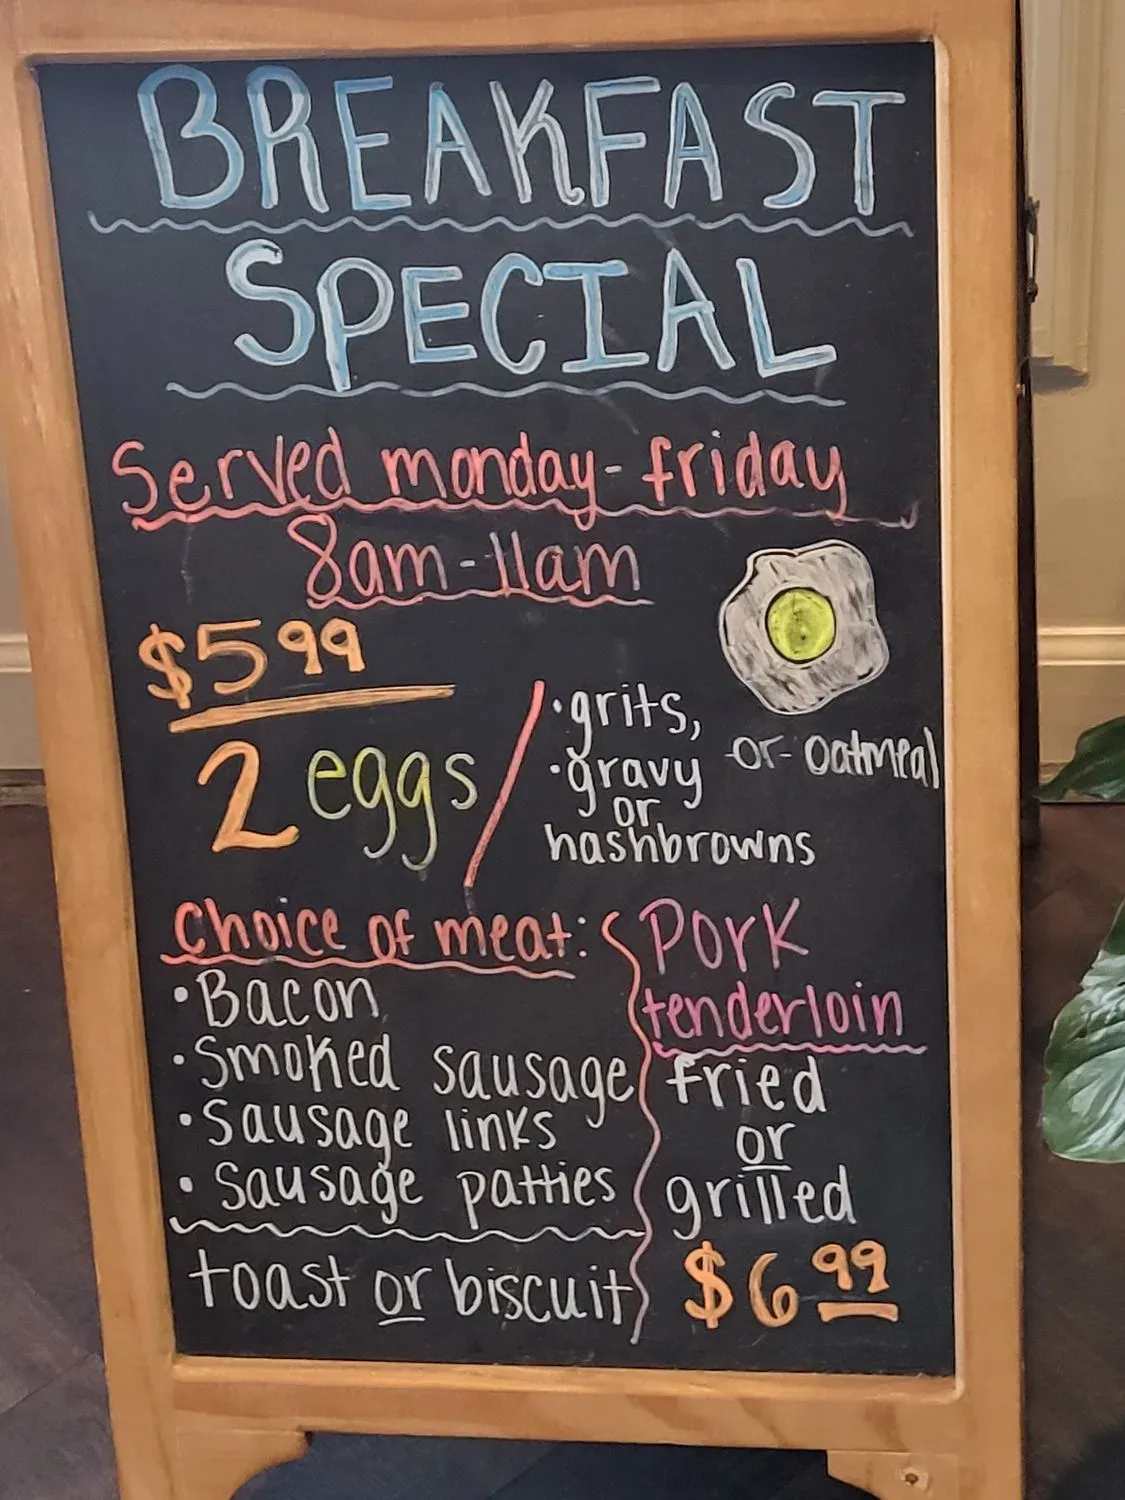 BREAKFAST
SPECIAL
Served monday-friday
8am-11am
$5.99
2 eggs / •grits,
•gravy -or- oatmeal
or
hashbrowns
Choice of meat:
•Bacon
•Smoked sausage
•Sausage links
•Sausage patties
toast or biscuit
Pork
tenderloin
fried
or
grilled
$6 99